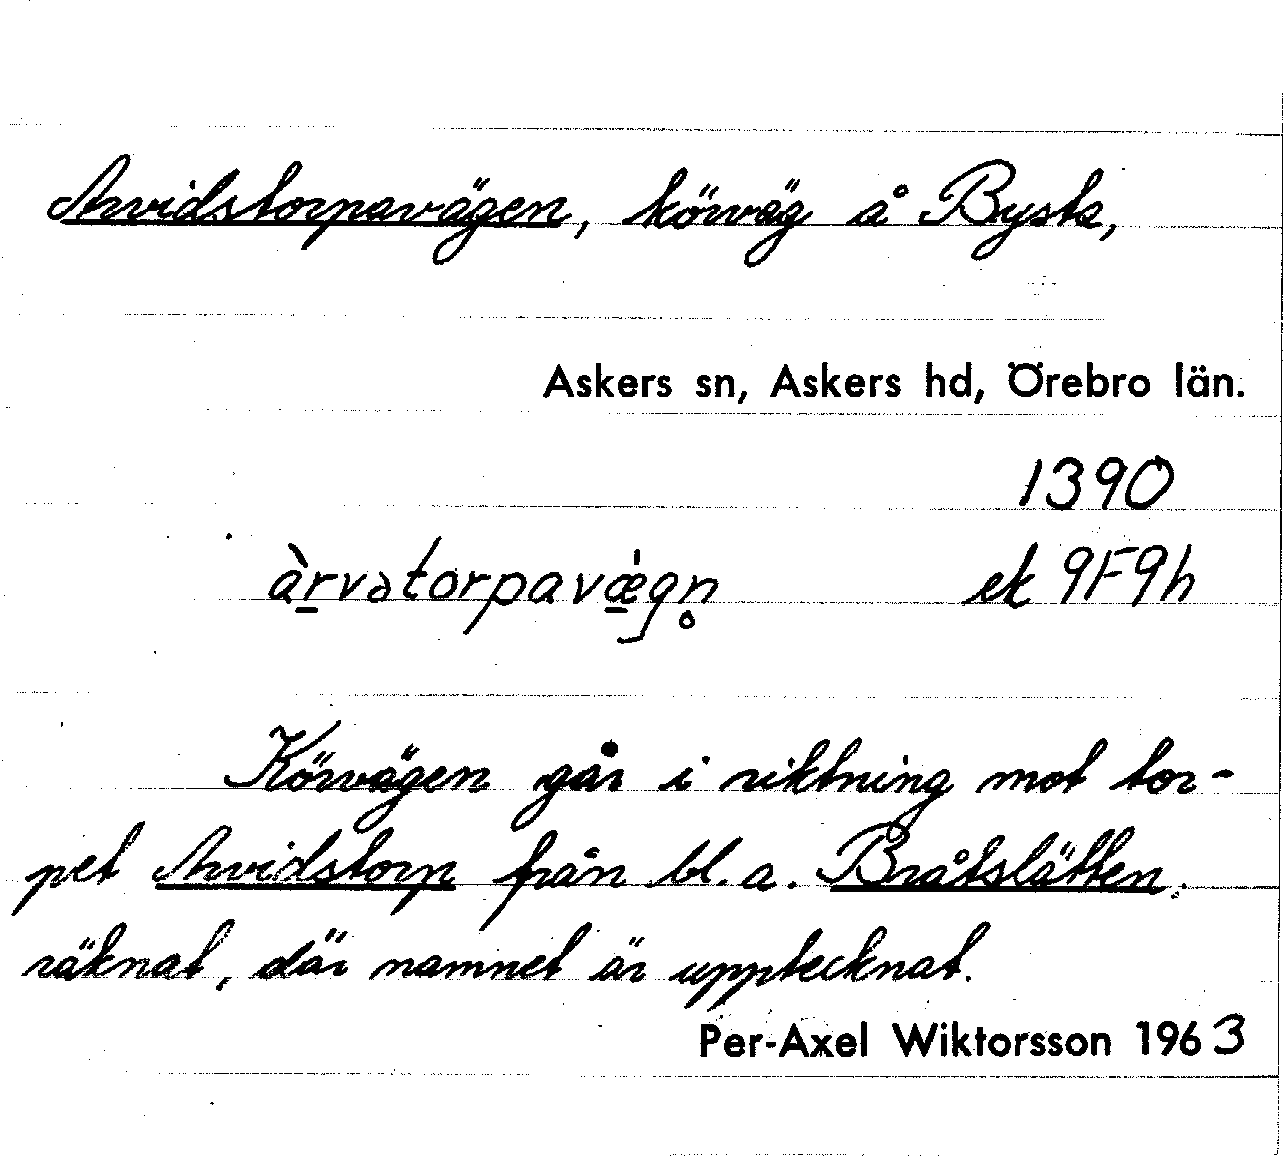 Arvidstorpavägen, körväg å Bysta,
Askers sn, Askers hd, Örebro län.
1390
àrvətorpavǽgn̥ ek 9F9h
Körvägen går i riktning mot tor-
pet Arvidstorp från bl. a. Bråtslätten,
räknat, där namnet är upptecknat.
Per-Axel Wiktorsson 1963